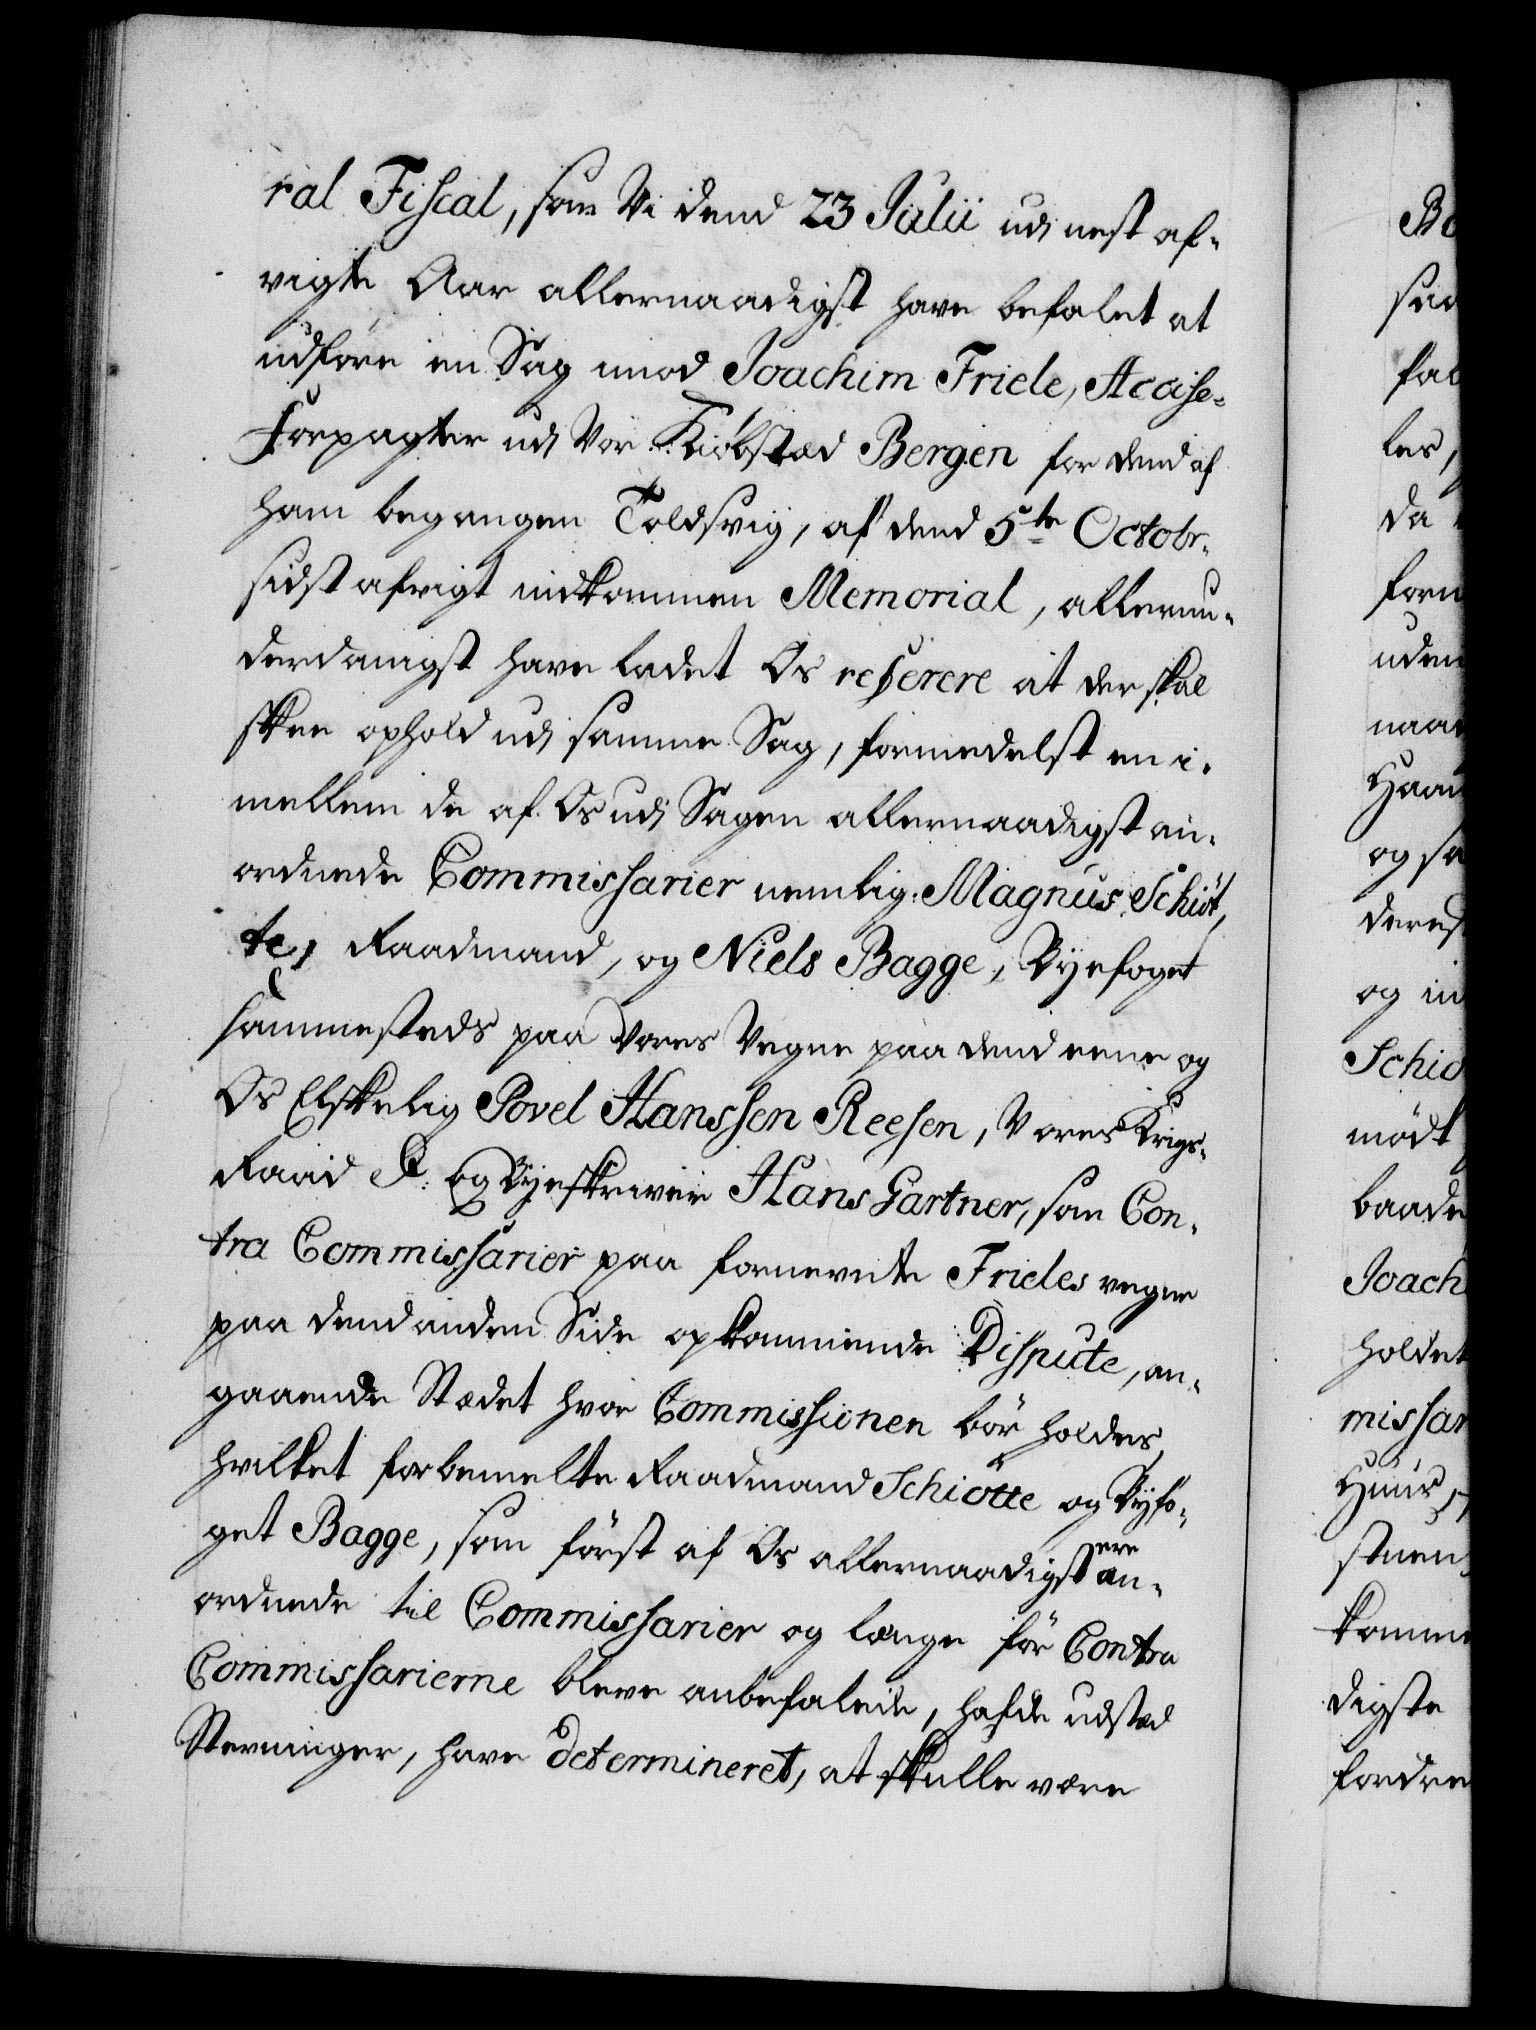 ral Fiscal, som Vi dend 23 Julii udi nest af-
vigte Aar allernaadigst have befalet at
udføre en Sag imod Joachim Friele, Accise-
Forpagter udi Vor Kiøbstæd Bergen for dend af
ham begangen Toldsvig, af dend 5te Octobr.
sidst afvigt indkommen Memorial, allerun-
derdanigst have ladet Os referere at der skal
skee ophold udi samme Sag, formedelst en i-
mellem de af Os udi Sagen allernaadigst an-
ordnede Commissarier nemlig: Magnus Schiøt,
te, Raadmand, og Niels Bagge, Byefoget
sammesteds paa Vores Vegne paa dend eene og
Os Elskelig Povel Hanssen Reesen, Vores Krigs-
Raad &: og Byeskriver Hans Gartner, som Con-
tra Commissarier paa fornevnte Frieles vegne
paa dend anden Side opkommende Dispute, an-
gaaende Stædet hvor Commissionen bør holdes,
hvilket forbemelte Raadmand Schiøtte og Byfo-
get Bagge, som først af Os allernaadigst ere an-
ordnede til Commissarier og længe før Contra
Commissarierne bleve anbefalede, hafde udstæd
Stevninger, have determineret, at skulle være
Bo
fal
les,
da
form
uden
naar
Haan
og sa
deres
og in
Schiø
mødt
baade
Joach
holdet
missar
Huus,
stuen
komme
digste
fordre